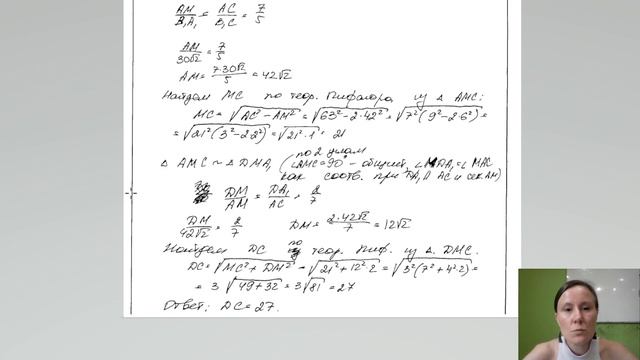 AM/B₁A₁ = AC/B₁C = 7/5
AM/30√2 = 7/5
AM = 7·30√2/5 = 42√2
Найдем MC по теор. Пифагора из △ AMC:
MC = √AC² − AM² = √63² − 2·42² = √7²(9² − 2·6²) =
= √21²(3² − 2·2²) = √21²·1 = 21
△ AMC ~ △ DMA₁ (по 2 углам
∠AMC = 90° – общий, ∠MDA₁ = ∠ MAC
как соотв. при DA₁ || AC и сек AM)
DM/AM = DA₁/AC = 2/7
DM/42√2 = 2/7 DM = 2·42√2/7 = 12√2
Найдем DC по теор. Пиф. из △ DMC.
DC = √MC² + DM² = √21² + 12²·2 = √3²(7² + 4²·2) =
= 3 √49 + 32 = 3√81 = 27
Ответ: DC = 27.